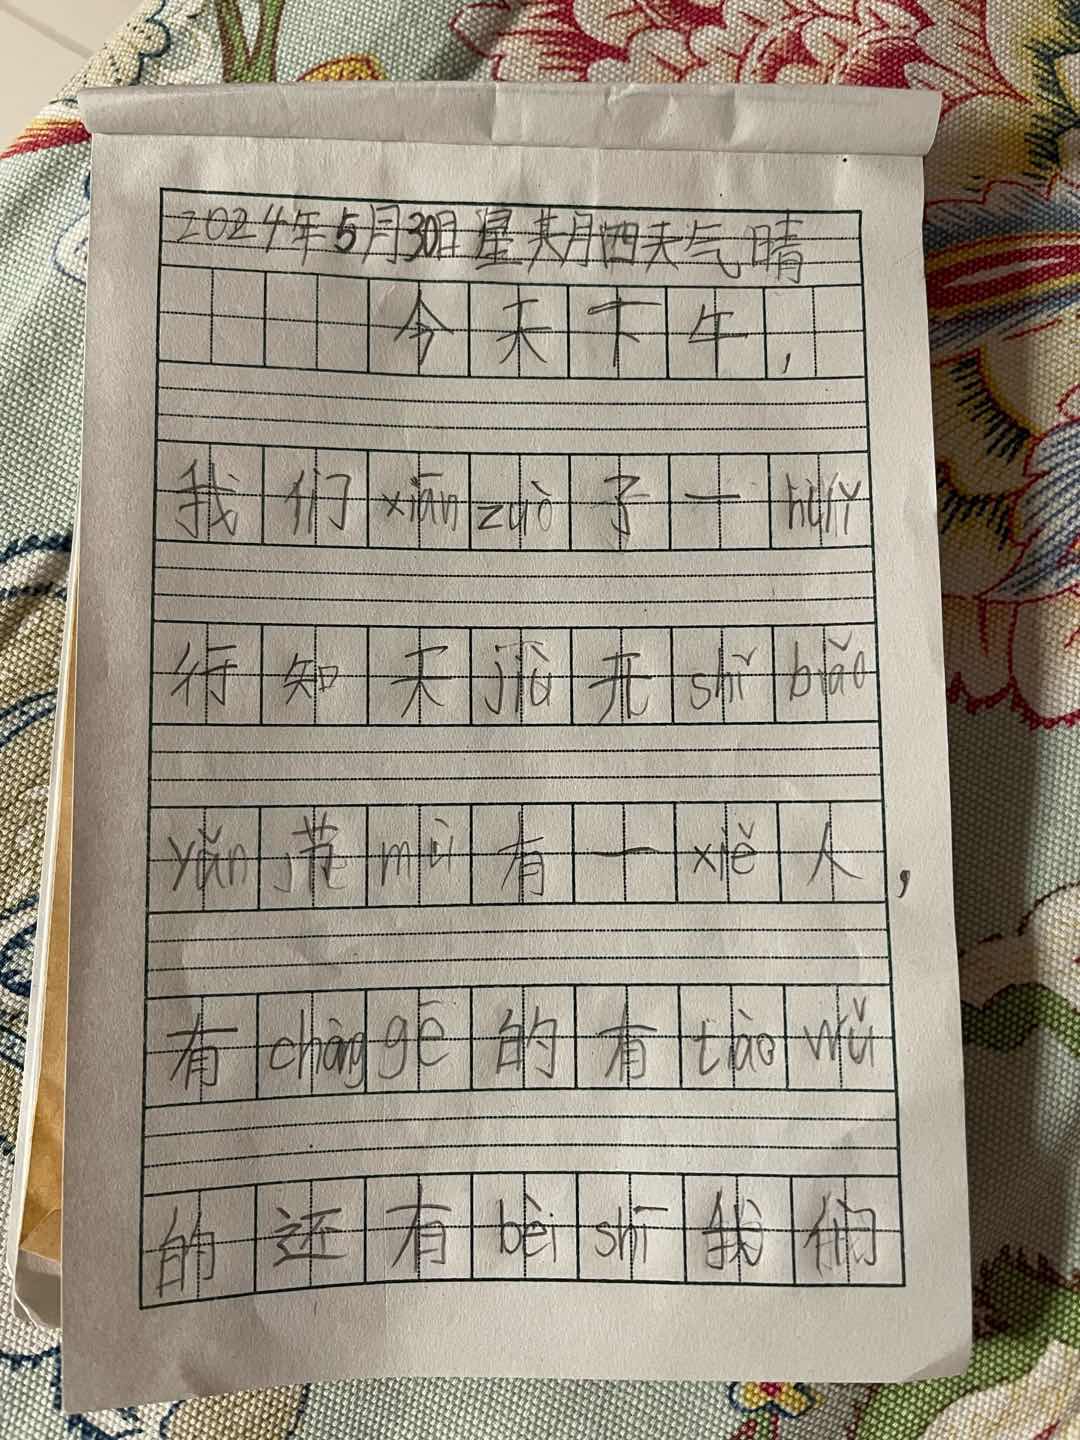 2024年5月30日星期四天气晴
今天下午，
我们xiān zuò了一huìr
行知天jiù开shǐ biǎo
yǎn 节mù有一xiě人，
有chàng gē的有tiào wǔ
的还有bèi shī我们